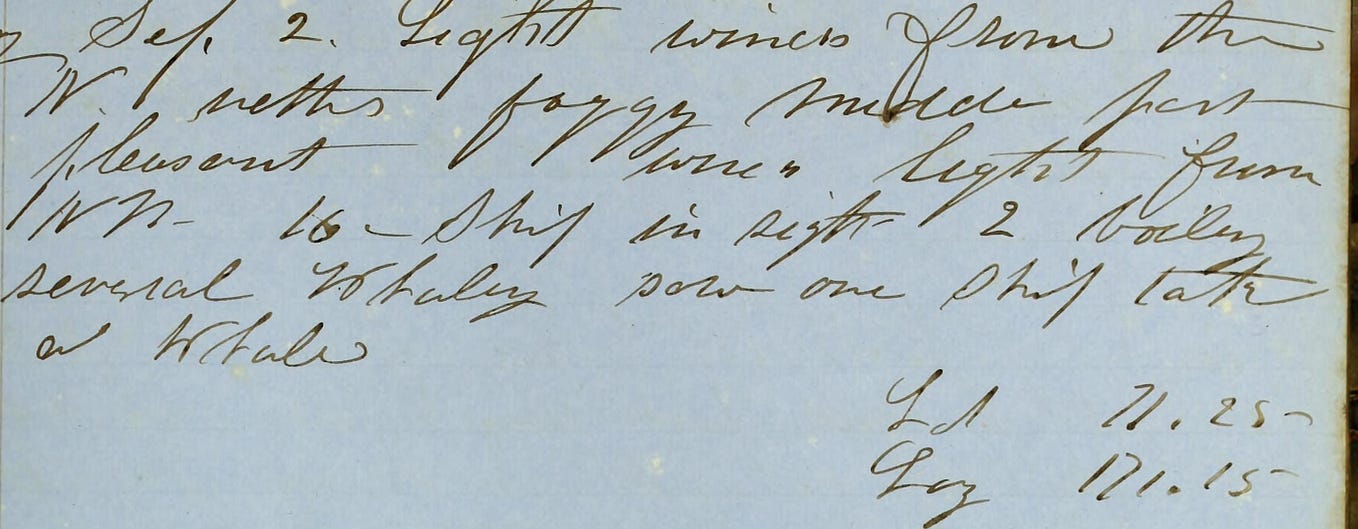 Sep. 2. Light winds from the
N. foggy Middle part
pleasant wind light from
NN- 16 - Ship in sight 2 boiling
several Whales saw one Ship take
a Whale
Ld 71.25
Log 171.15